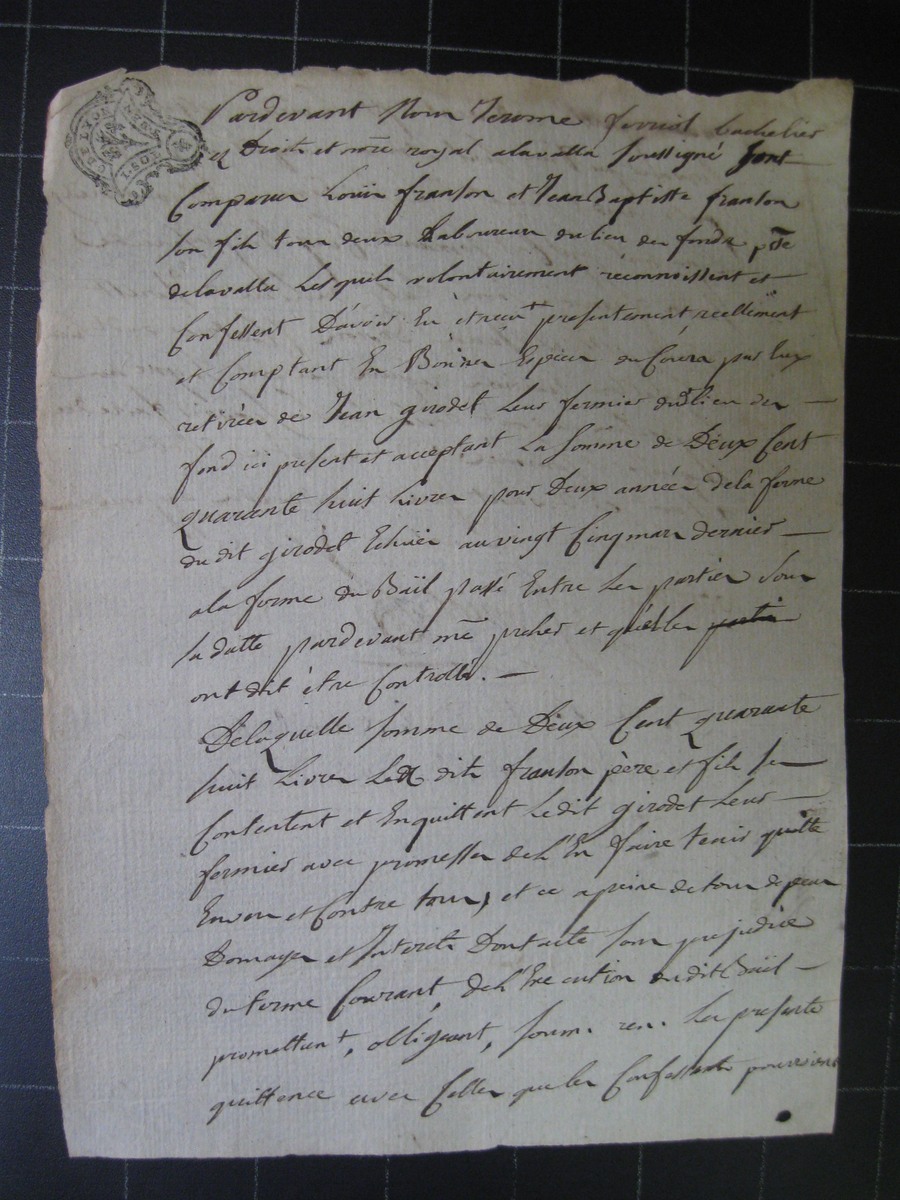 Pardevant Nous Jerome ferriol bachelier
es Droits et nore royal alavalla soussigné sont
Comparus Louis franson et Jean Baptiste franson
son fils tous deux Laboureurs du lieu du fonds psse
delavalla Lesquels volontairement réconnoissent et
Confessent D'avoir Eu et reçut presentement reellement
et Comptant En Bonnes Espèces du Cours par Eux
retirées de Jean girodet Leur fermier dud lieu du
fond ici present et acceptant La Somme de Deux Cent
quarante huit Livres pour Deux années dela ferme
du dit girodet Echües au vingt Cinq mars dernier
ala forme du Bail passé Entre Les parties sous
sa datte pardevant me et qu'elles
ont dit être Controllé.
Delaquelle somme de Deux Cent quarante
huit Livres Les dits franson père et fils se
Contentent et Enquittent Ledit girodet Leur
fermier avec promesses de L'En faire tenir quitte
Envers et Contre tous, et ce apeine de tous depens
Domages et Interets Dont acte sans prejudice
du terme Courant, de L'Execution du dit Bail
promettant, obligeant, soum. ren. La presente
quittance avec Celles que les Confessants pourroient
DE LYON